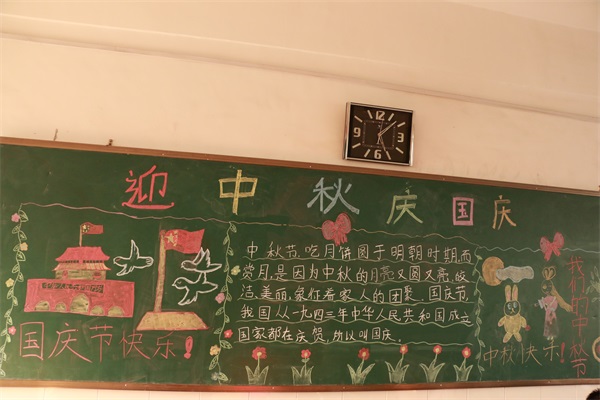 12
9 3
6
迎中秋庆国庆
中秋节,吃月饼圆于明朝时期,而
赏月,是因为中秋的月亮又圆又亮,皎
洁、美丽、象征着家人的团聚。国庆节,
我国从一九四三年中华人民共和国成立
国家都在庆贺,所以叫国庆。
国庆节快乐!
中秋快乐!
我们的中秋节